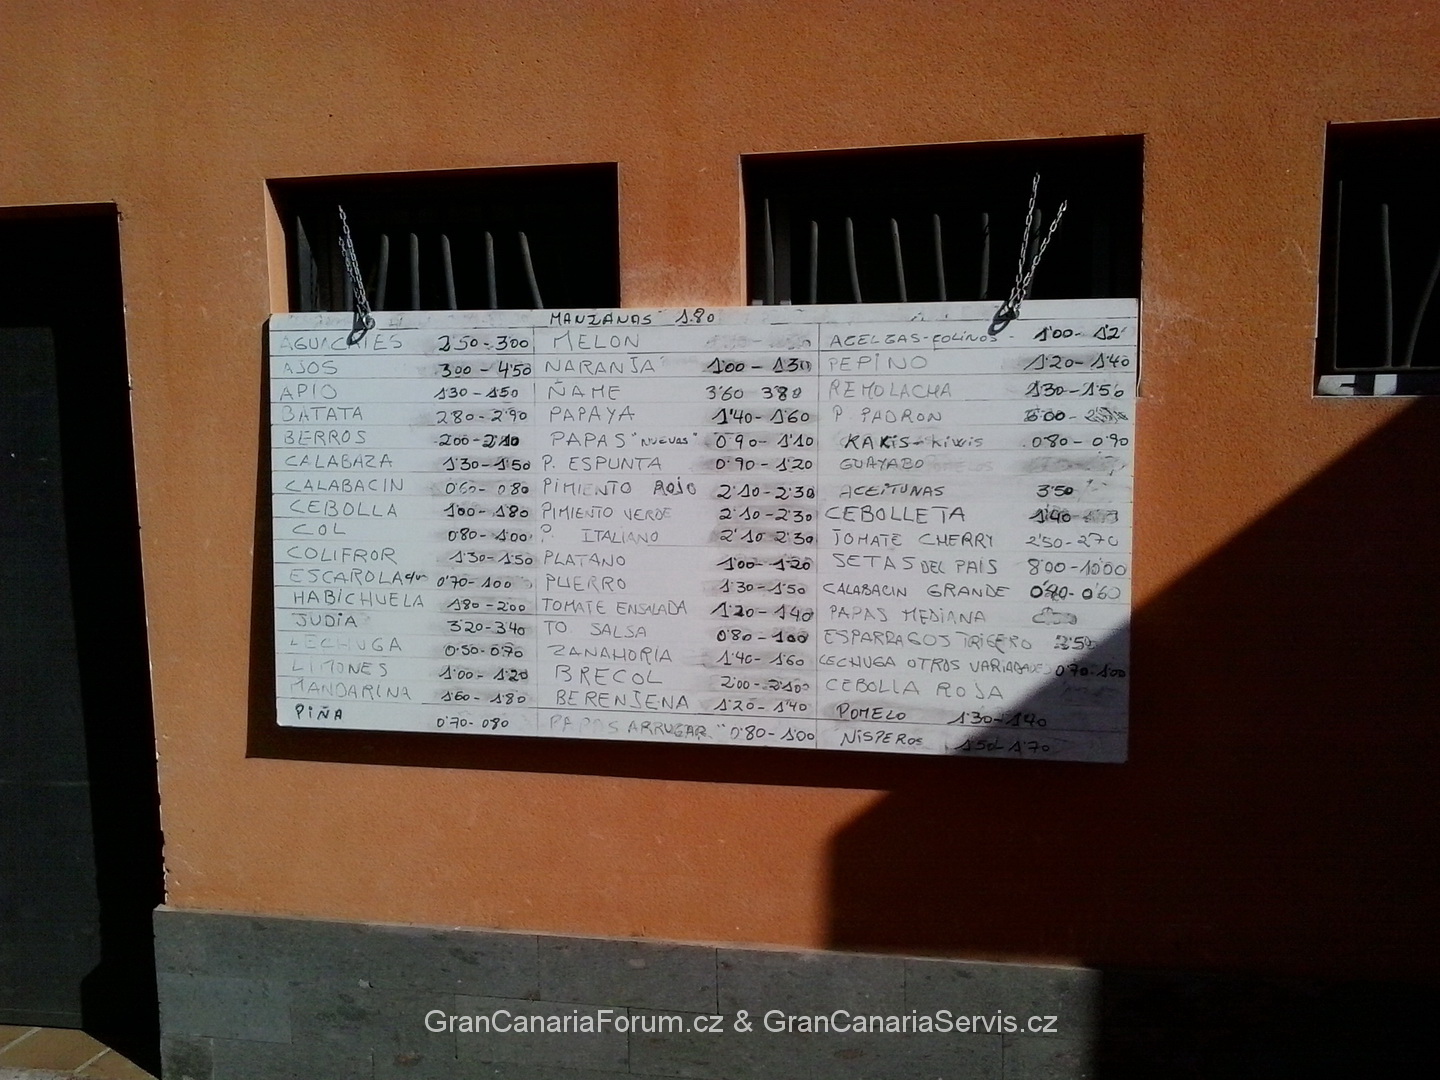 MANZANAS 1.80
AGUACATES 2'50-300
AJOS 300-4'50
APIO 130-150
BATATA 280-2'90
BERROS 200-2'10
CALABAZA 1'30-1'50
CALABACIN 0'60-080
CEBOLLA 100-1'80
COL 080-1'00
COLIFROR 1'30-1'50
ESCAROLA 0'70-100
HABICHUELA 180-200
JUDIA 3'20-3'40
LECHUGA 0'50-0'70
LIMONES 1'00-1'20
MANDARINA 1'60-1'80
PIÑA 0'70-080
MELON
NARANJA 1'00-130
ÑAME 3'60 380
PAPAYA 1'40-1'60
PAPAS "NUEVAS" 0'90-1'10
P. ESPUNTA 0'90-1'20
PIMIENTO ROJO 2'10-2'30
PIMIENTO VERDE 2'10-2'30
P. ITALIANO 2'10 2'30
PLATANO 1'00-1'20
PUERRO 1'30-1'50
TOMATE ENSALADA 1'20-140
TO SALSA 0'80-100
ZANAHORIA 1'40-1'60
BRECOL 2'00-2'10
BERENJENA 1'20-1'40
PAPAS ARRUGAR 0'80-1'00
ACELGAS-COLINOS- 1'00-12'
PEPINO 1'20-1'40
REMOLACHA 1'30-1'50
P. PADRON
KAKIS-kiwis 0'80-0'90
GUAYABO
ACEITUNAS 3'50
CEBOLLETA 1'40
TOMATE CHERRY 2'50-270
SETAS DEL PAIS 8'00-10'00
CALABACIN GRANDE 0'40-0'60
PAPAS MEDIANA
ESPARRAGOS TRIGERO 2'50
LECHUGA OTROS VARIADADES 0'70-1'00
CEBOLLA ROJA
POMELO 1'30-1'40
NISPEROS 1'50-1'70
GranCanariaForum.cz & GranCanariaServis.cz